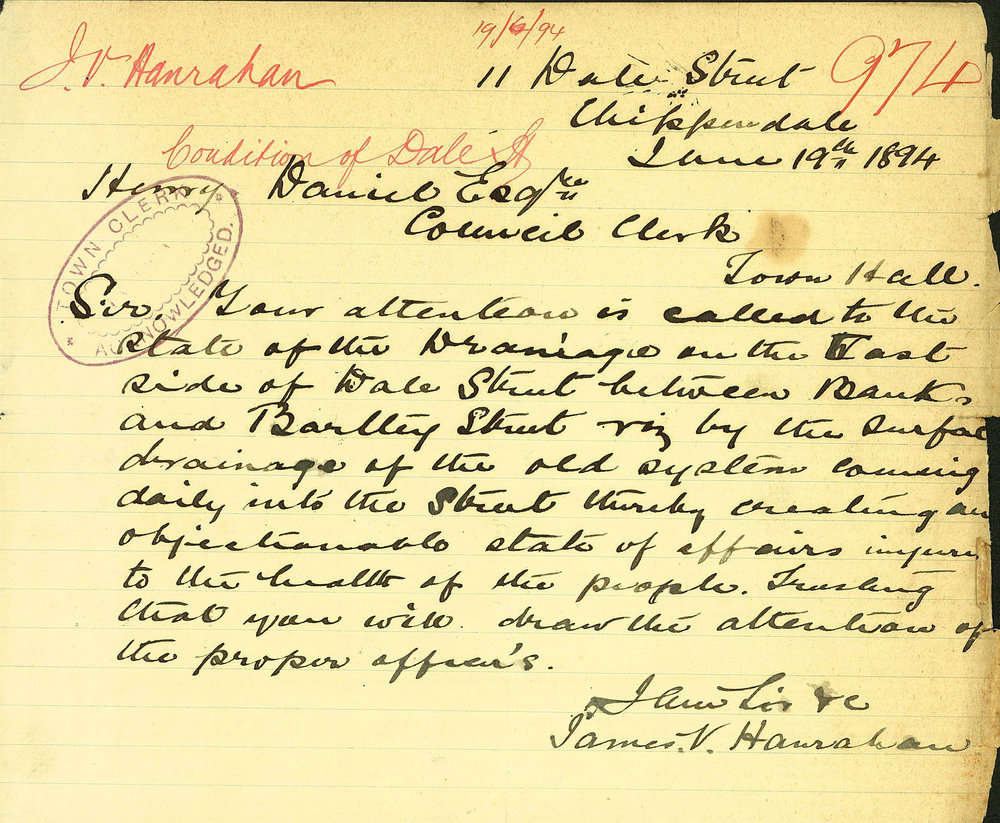 19/6/94
J. V. Hanrahan
974
11 Dale Street
Chippendale
Condition of Dale St
June 19th 1894
Henry Daniel Esqre
Council Clerk
Town Hall.
TOWN CLERK
ACKNOWLEDGED.
Sir. Your attention is called to the
state of the Drainage on the East
side of Dale Street between Bank
and Bartley Street viz by the surfac
drainage of the old system coming
daily into the Street thereby creating an
objectionable state of affairs injuri
to the health of the people. Trusting
that you will draw the attention of
the proper officer's.
I am Sir &c
James. V. Hanrahan